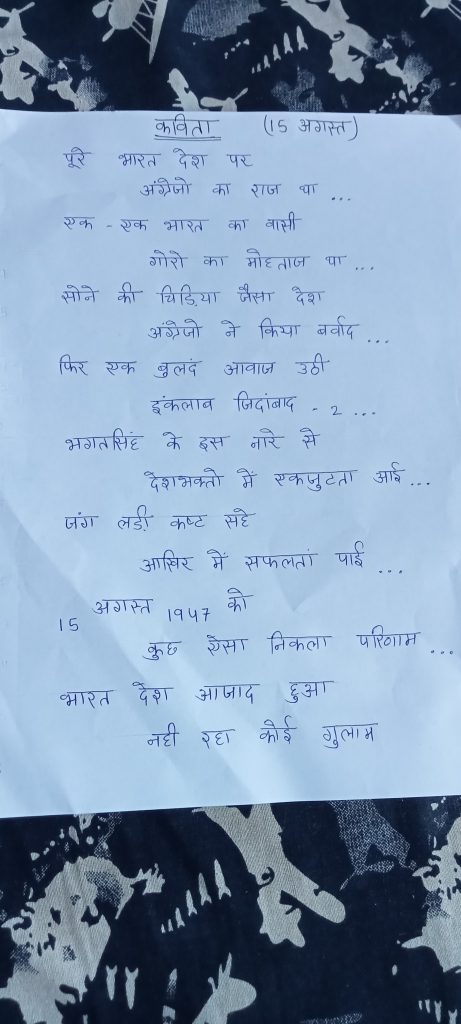 कविता (15 अगस्त)
पूरे भारत देश पर
अंग्रेजो का राज था ...
एक - एक भारत का वासी
गोरो का मोहताज था ...
सोने की चिडि़या जैसा देश
अंग्रेजो ने किया बर्वाद ...
फिर एक बुलदं आवाज उठी
इंकलाव जिदांबाद - 2 ...
भगतसिंह के इस नारे से
देशभक्तो में एकजुटता आई ...
जंग लडी़ कष्ट सहे
आखिर में सफलतां पाई ...
15 अगस्त 1947 को
कुछ ऐसा निकला परिणाम ...
भारत देश आजाद हुआ
नही रहा कोई गुलाम